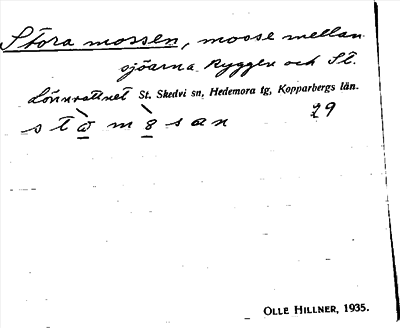 Stora mossen, mosse mellan
sjöarna Ryggen och St.
Lönnvattnet St. Skedvi sn, Hedemora tg, Kopparbergs län.
29
OLLE HILLNER, 1935.